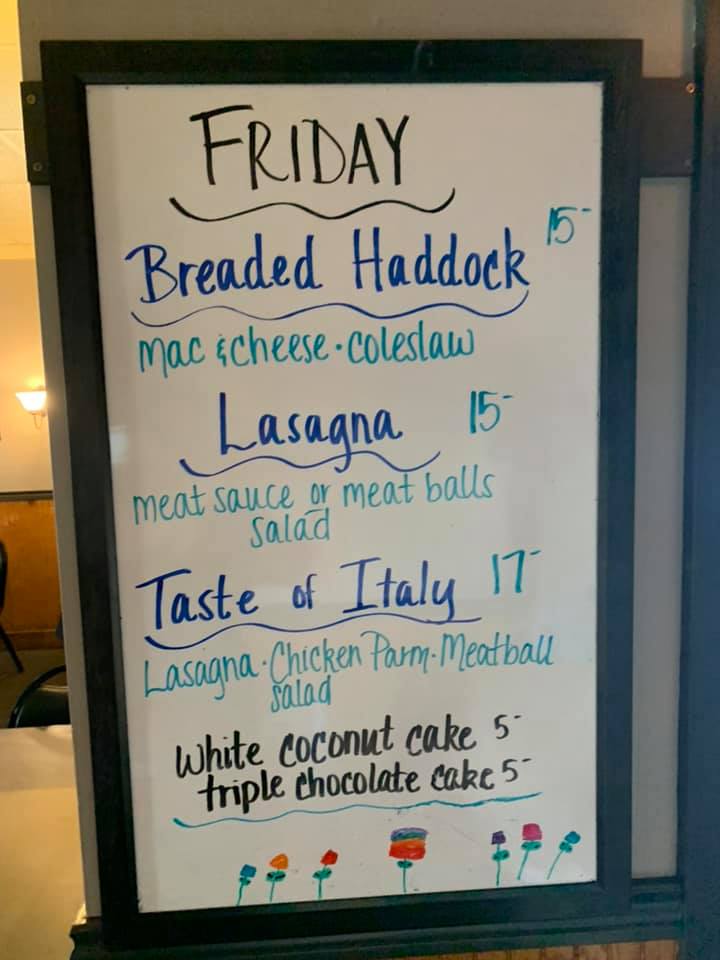 FRIDAY
Breaded Haddock 15-
mac & cheese · coleslaw
Lasagna 15-
meat sauce or meat balls
salad
Taste of Italy 17-
Lasagna · Chicken Parm · Meatball
salad
white coconut cake 5-
triple chocolate cake 5-